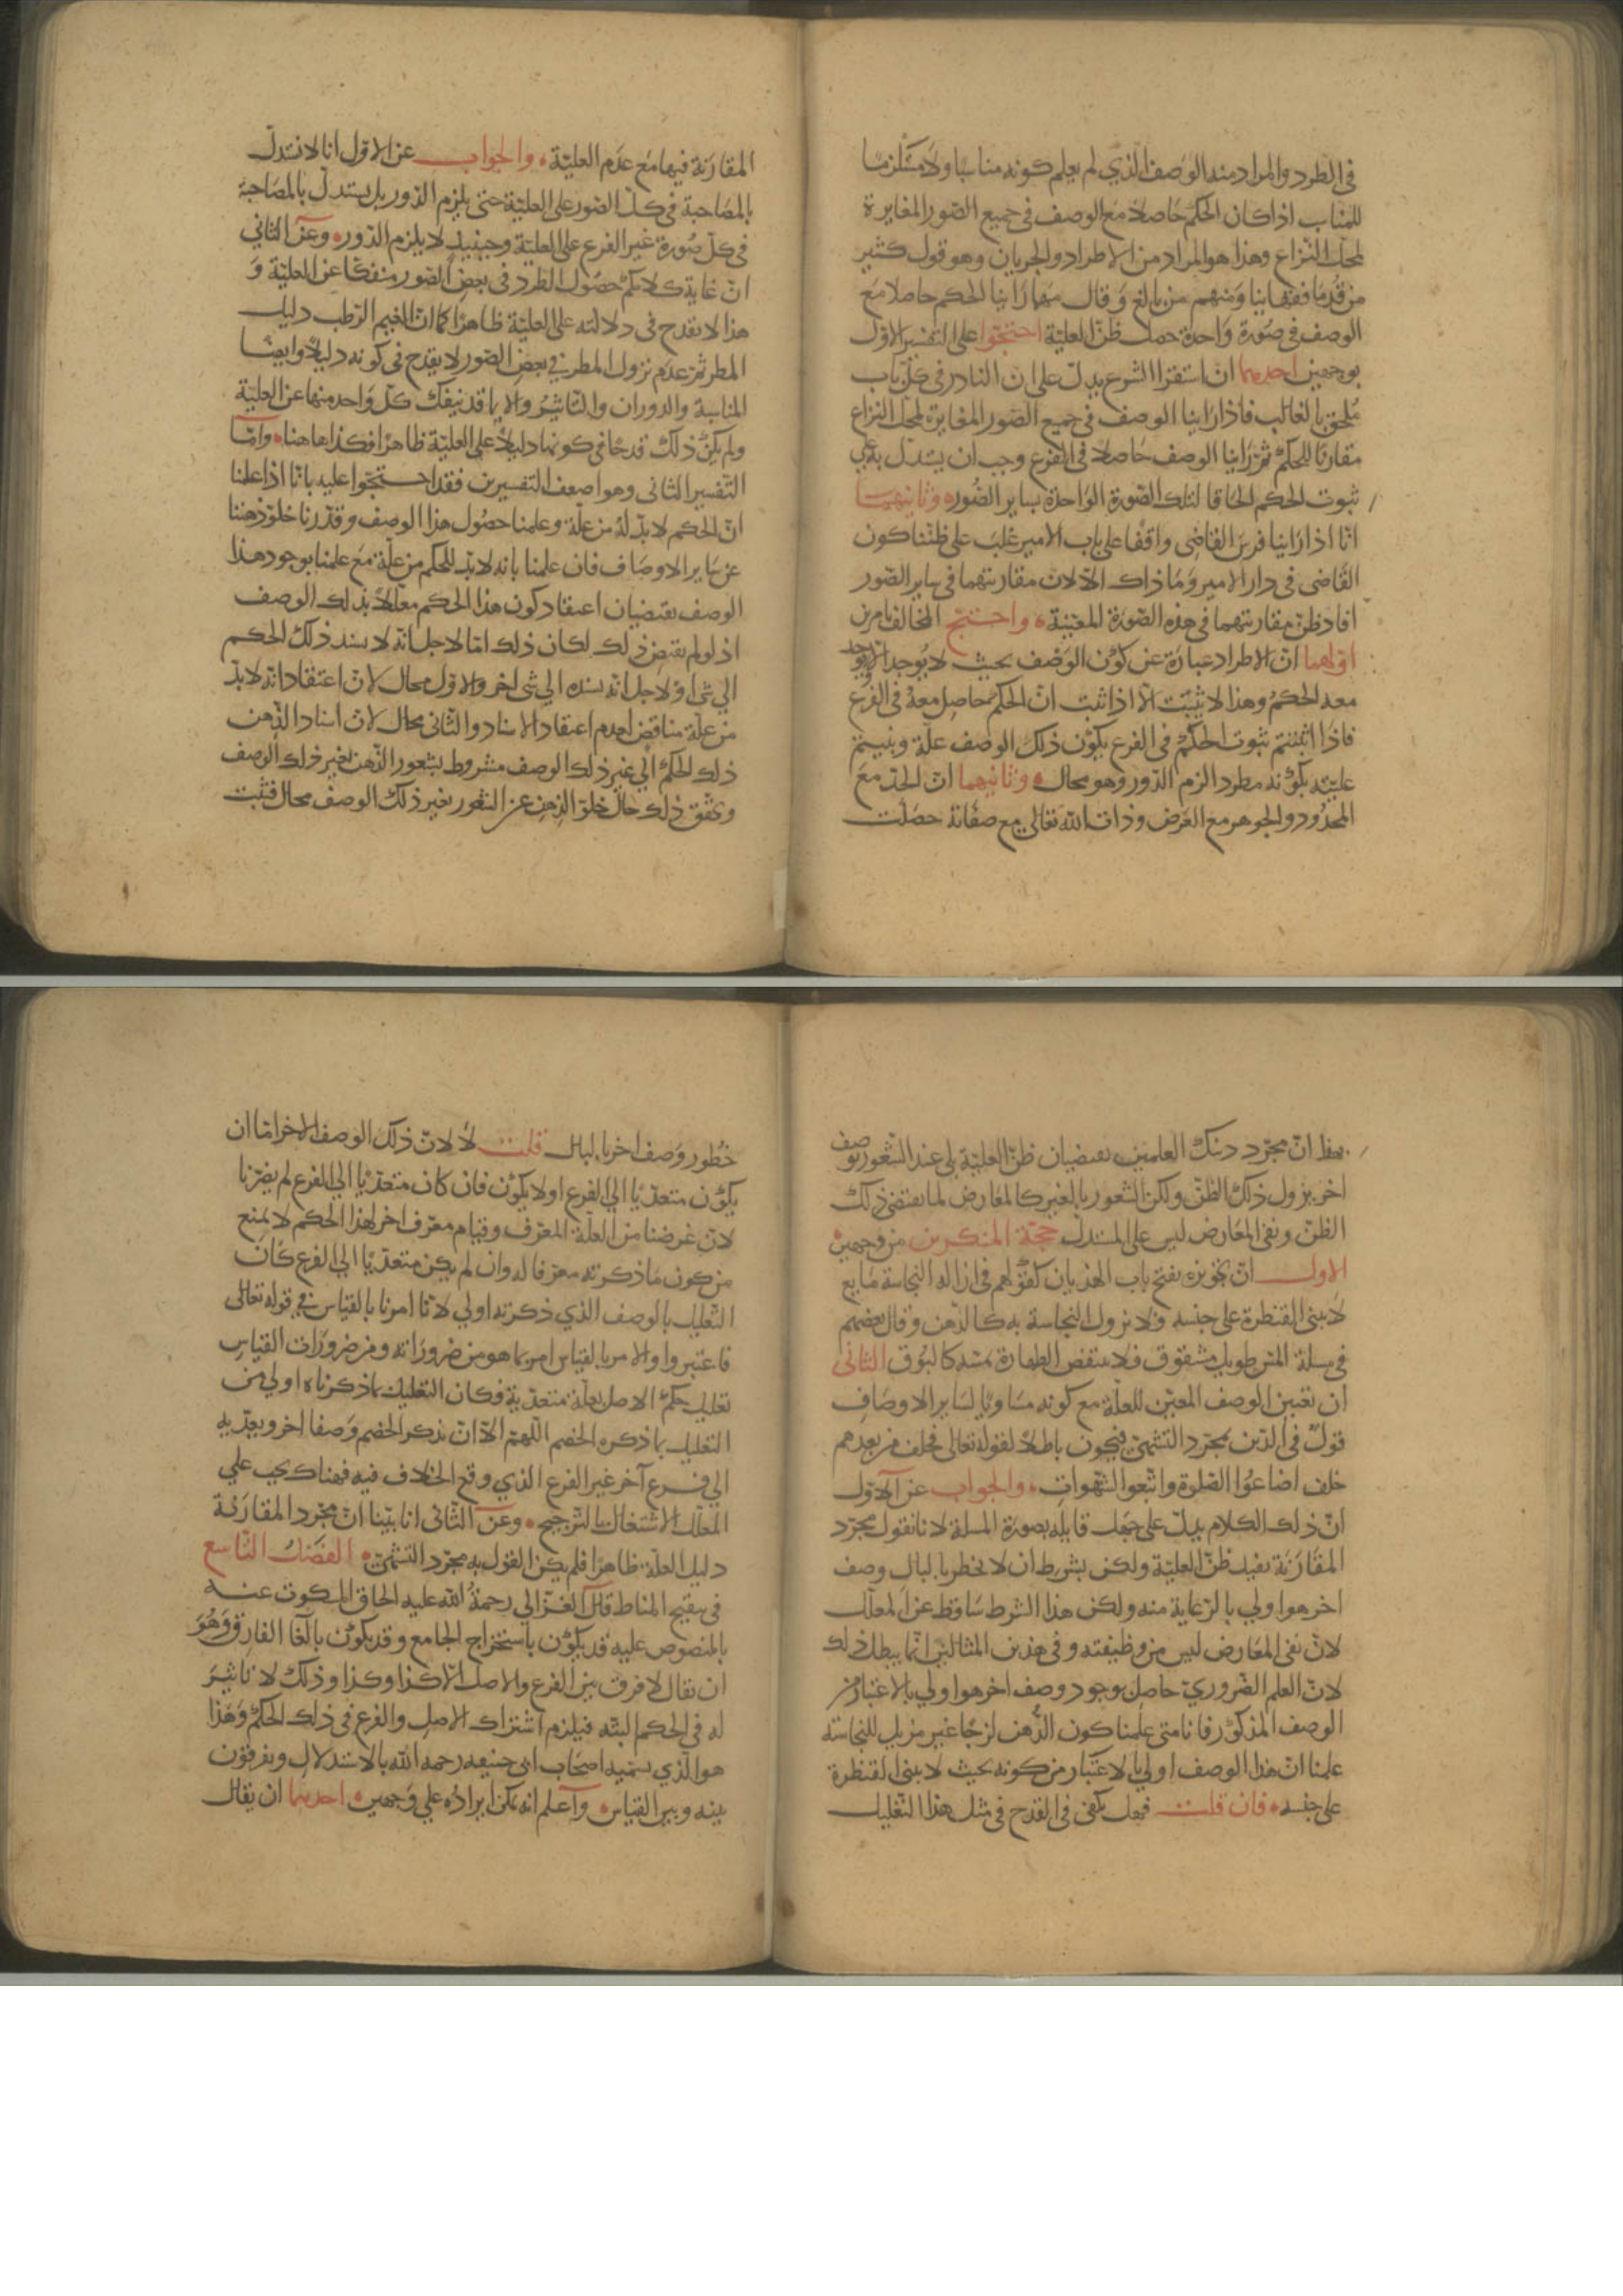 في الطرد والمراد منه الوصف الذي لم يعلم كونه مناسبا ولا مستلزما
للمناسب اذا كان الحكم حاصلا مع الوصف في جميع الصور المغايرة
لمحل النزاع وهذا هو المراد من الاطراد والجريان وهو قول كثير
من قدما فقهاينا ومنهم من بالغ وقال مهما راينا الحكم حاصلا مع
الوصف في صورة واحدة حصل ظن العلية احتجوا على التفسير الاول
بوجهين احدهما ان استقرا الشرع يدل على ان النادر في كل باب
ملحق بالغالب فاذا راينا الوصف في جميع الصور المغايرة لمحل النزاع
مقارنا للحكم ثم راينا الوصف حاصلا في الفرع وجب ان يستدل به على
ثبوت الحكم الحاقا لتلك الصورة الواحدة بساير الصور وثانيهما
انا اذا راينا فرس القاضي واقفا على باب الامير غلب على ظننا كون
القاضي في دار الامير وما ذاك الا لان مقارنتهما في ساير الصور
افاد ظن مقارنتهما في هذه الصورة المعينة واحتج المخالف بامرين
اولهما ان الاطراد عبارة عن كون الوصف بحيث لا يوجد الا ويوجد
معه الحكم وهذا لا يثبت الا اذا ثبت ان الحكم حاصل معه في الفرع
فاذا اثبتتم ثبوت الحكم في الفرع بكون ذلك الوصف علة وبينتم
عليته بكونه مطردا لزم الدور وهو محال وثانيهما ان الحد مع
المحدود والجوهر مع العرض وذات الله تعالى مع صفاته حصلت
المقارنة فيها مع عدم العلية والجواب عن الاول انا لا نستدل
بالمصاحبة في كل الصور على العلية حتى يلزم الدور بل يستدل بالمصاحبة
في كل صورة غير الفرع على العلية وحينيذ لا يلزم الدور وعن الثاني
ان غاية كلامكم حصول الطرد في بعض الصور منفكا عن العلية و
هذا لا يقدح في دلالته على العلية ظاهرا كما ان الغيم الرطب دليل
المطر ثم عدم نزول المطر في بعض الصور لا يقدح في كونه دليلا وايضا
المناسبة والدوران والتاثير والايما قد ينفك كل واحد منها عن العلية
ولم يكن ذلك قدحا في كونها دليلا على العلية ظاهرا فكذا هاهنا واما
التفسير الثاني وهو اضعف التفسيرين فقد احتجوا عليه بانا اذا علمنا
ان الحكم لا بد له من علة وعلمنا حصول هذا الوصف وقدرنا خلو ذهننا
عن ساير الاوصاف فان علمنا بانه لا بد للحكم من علة مع علمنا بوجود هذا
الوصف يقتضيان اعتقاد كون هذا الحكم معللا بذلك الوصف
اذ لو لم يقتض ذلك لكان ذلك اما لاجل انه لا يسند ذلك الحكم
الي شي او لاجل انه يسنده الي شي اخر والاول محال لان اعتقاد انه لا بد
من علة مناقض لعدم اعتقاد الاسناد والثاني محال لان اسناد الذهن
ذلك الحكم الي غير ذلك الوصف مشروط بشعور الذهن لغير ذلك الوصف
وتحقق ذلك حال خلو الذهن عن الشعور بغير ذلك الوصف محال فثبت
بهذا ان مجرد دينك العلمين يقتضيان ظن العلية بلى عند الشعور بوصف
اخر يزول ذلك الظن ولكن الشعور بالغير كالمعارض لما يقتضي ذلك
الظن ونفى المعارض ليس على المستدل حجة المنكرين من وجهين
الاول ان تجويزه يفتح باب الهذيان كقولهم في ازالة النجاسة مايع
لا يبنى القنطرة على جنسه فلا تزول النجاسة به كالدهن وقال بعضهم
في مسلة المس طويل مشقوق فلا ينتقض الطهارة بمسه كالبوق الثاني
ان تعيين الوصف المعين للعلة مع كونه مساويا لساير الاوصاف
قول في الدين بمجرد التشهي فيكون باطلا لقوله تعالى فخلف من بعدهم
خلف اضاعوا الصلوة واتبعوا الشهوات والجواب عن الاول
ان ذلك الكلام يدل على جهل قايله بصورة المسلة لانا نقول مجرد
المقارنة يفيد ظن العلية ولكن بشرط ان لا يخطر بالبال وصف
اخر هو اولي بالرعاية منه ولكن هذا الشرط ساقط عن المعلل
لان نفى المعارض ليس من وظيفته وفي هذين المثالين انما يبطل ذلك
لان العلم الضروري حاصل بوجود وصف اخر هو اولي بالاعتبار من
الوصف المذكور فانا متى علمنا كون الدهن لزجا غير مزيل للنجاسة
علمنا ان هذا الوصف اولي بالاعتبار من كونه بحيث لا يبنى القنطرة
على جنسه فان قلت فهل يكفى في القدح في مثل هذا التعليل
خطور وصف اخر بالبال قلت لا لان ذلك الوصف الاخر اما ان
يكون متعديا الي الفرع او لا يكون فان كان متعديا الي الفرع لم يضرنا
لان غرضنا من العلة المعرف وقيام معرف اخر لهذا الحكم لا يمنع
من كون ما ذكرته معرفا له وان لم يكن متعديا الي الفرع كان
التعليل بالوصف الذي ذكرته اولي لانا امرنا بالقياس في قوله تعالى
فاعتبروا والامر بالقياس امر بما هو من ضروراته ومن ضرورات القياس
تعليل حكم الاصل بعلة متعدية فكان التعليل بما ذكرناه اولي من
التعليل بما ذكره الخصم اللهم الا ان يذكر الخصم وصفا اخر ويعديه
الي فرع آخر غير الفرع الذي وقع الخلاف فيه فهناك يجب علي
المعلل الاشتغال بالترجيح وعن الثاني انا بينا ان مجرد المقارنة
دليل العلة ظاهرا فلم يكن القول به مجرد التشهي الفصل التاسع
في تنقيح المناط قال الغزالي رحمة الله عليه الحاق المسكوت عنه
بالمنصوص عليه قد يكون باستخراج الجامع وقد يكون بالغا الفارق وهو
ان يقال لا فرق بين الفرع والاصل الا كذا وكذا وذلك لا تاثير
له في الحكم البتة فيلزم اشتراك الاصل والفرع في ذلك الحكم وهذا
هو الذي يسميه اصحاب ابي حنيفه رحمه الله بالاستدلال ويفرقون
بينه وبين القياس وآعلم انه يمكن ايراده علي وجهين احدهما ان يقال